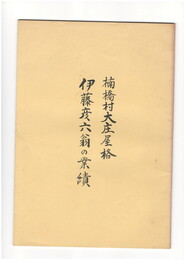 楠橋村大庄屋格
伊藤彦六翁の業績